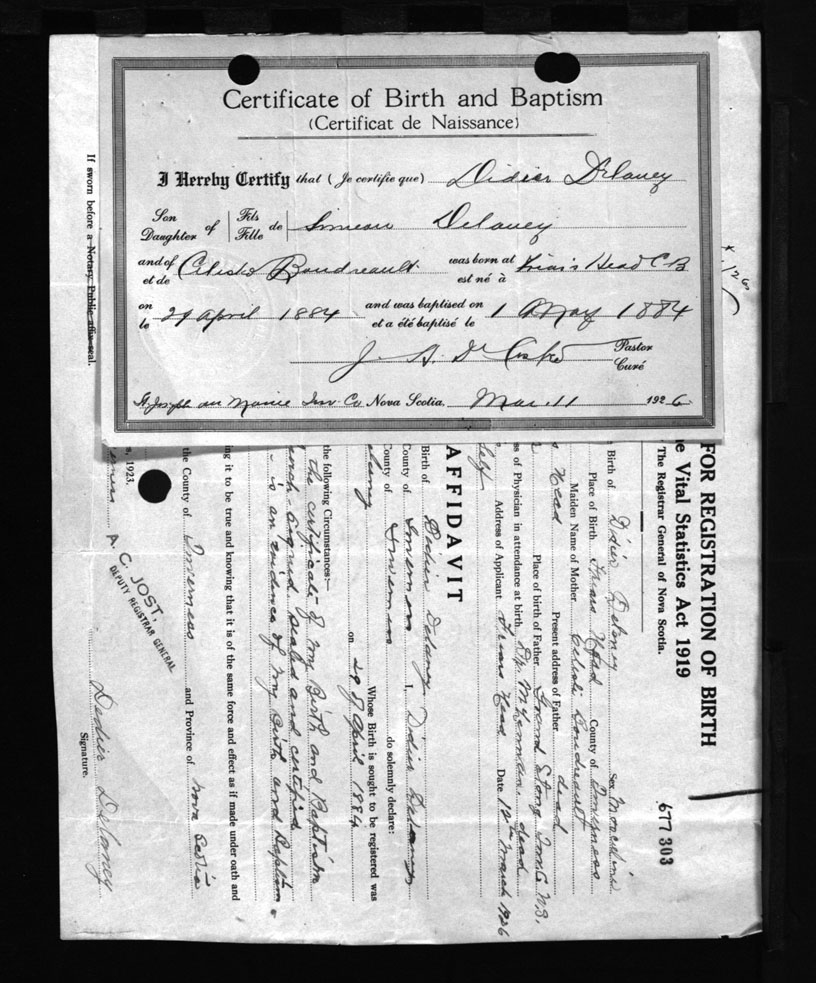 Certificate of Birth and Baptism
(Certificat de Naissance)
I Hereby Certify that (Je certifie que) Didier Delaney
Son Daughter of Fils Fille de Simeon Delaney
and of et de Celeste Boudreault was born at est né à Friar's Head C B
on le 29 April 1884 and was baptised on et a été baptisé le 1 May 1884
Pastor Curé
St Joseph du Moine Inv. Co Nova Scotia. Mar. 11 1926
If sworn before a Notary Public affix seal.
FOR REGISTRATION OF BIRTH
Vital Statistics Act 1919
The Registrar General of Nova Scotia.
677 303
Birth of Didier Delaney Sex Masculine
Place of Birth Friars Head County of Inverness
Maiden Name of Mother Celeste Boudreault
Head Present address of Father dead
Place of birth of Father Grand Etang Inv. Co N.S.
of Physician in attendance at birth Dr. McLennan dead
Self Address of Applicant Friars Head Date 12th March 1926
AFFIDAVIT
Birth of Didier Delaney
County of Inverness I, Didier Delaney
County of Inverness do solemnly declare:
Whose Birth is sought to be registered was
on 29 of April 1884
the following Circumstances:—
the certificate of my Birth and Baptism
signed sealed and certified
is an evidence of my Birth and Baptism
it to be true and knowing that it is of the same force and effect as if made under oath and
the County of Inverness and Province of Nova Scotia
1923.
A. C. JOST,
DEPUTY REGISTRAR GENERAL
Didier Delaney
Signature.